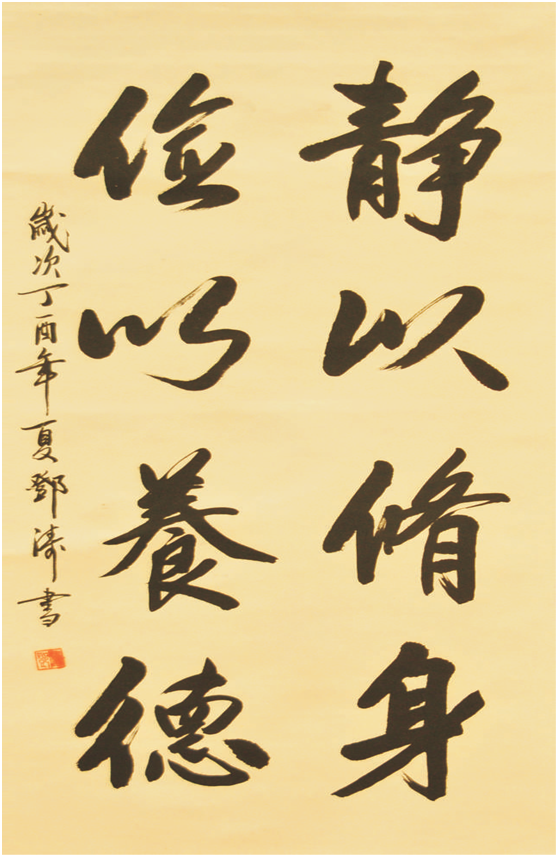 静以脩身
儉以養德
歲次丁酉年夏鄧濤書